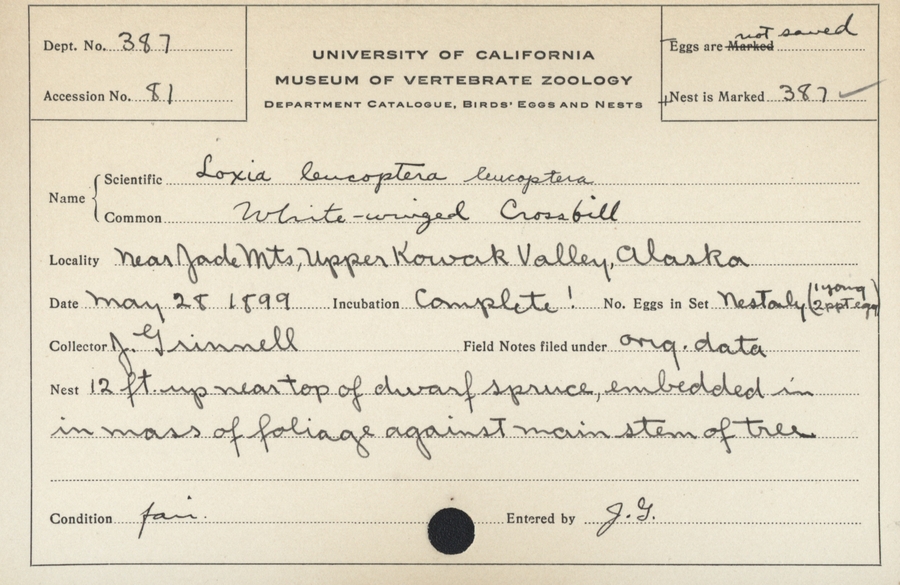 Dept. No. 387
Accession No. 81
UNIVERSITY OF CALIFORNIA
MUSEUM OF VERTEBRATE ZOOLOGY
DEPARTMENT CATALOGUE, BIRDS' EGGS AND NESTS
Eggs are Marked not saved
Nest is Marked 387 ✓
Name { Scientific Loxia leucoptera leucoptera
Common White-winged Crossbill
Locality near Jade Mts, Upper Kowak Valley, Alaska
Date May 28 1899 Incubation Complete! No. Eggs in Set Nest only (1 young
2 ppt egg)
Collector J. Grinnell Field Notes filed under orig. data
Nest 12 ft. up near top of dwarf spruce, embedded in
in mass of foliage against main stem of tree
Condition fair. Entered by J.G.